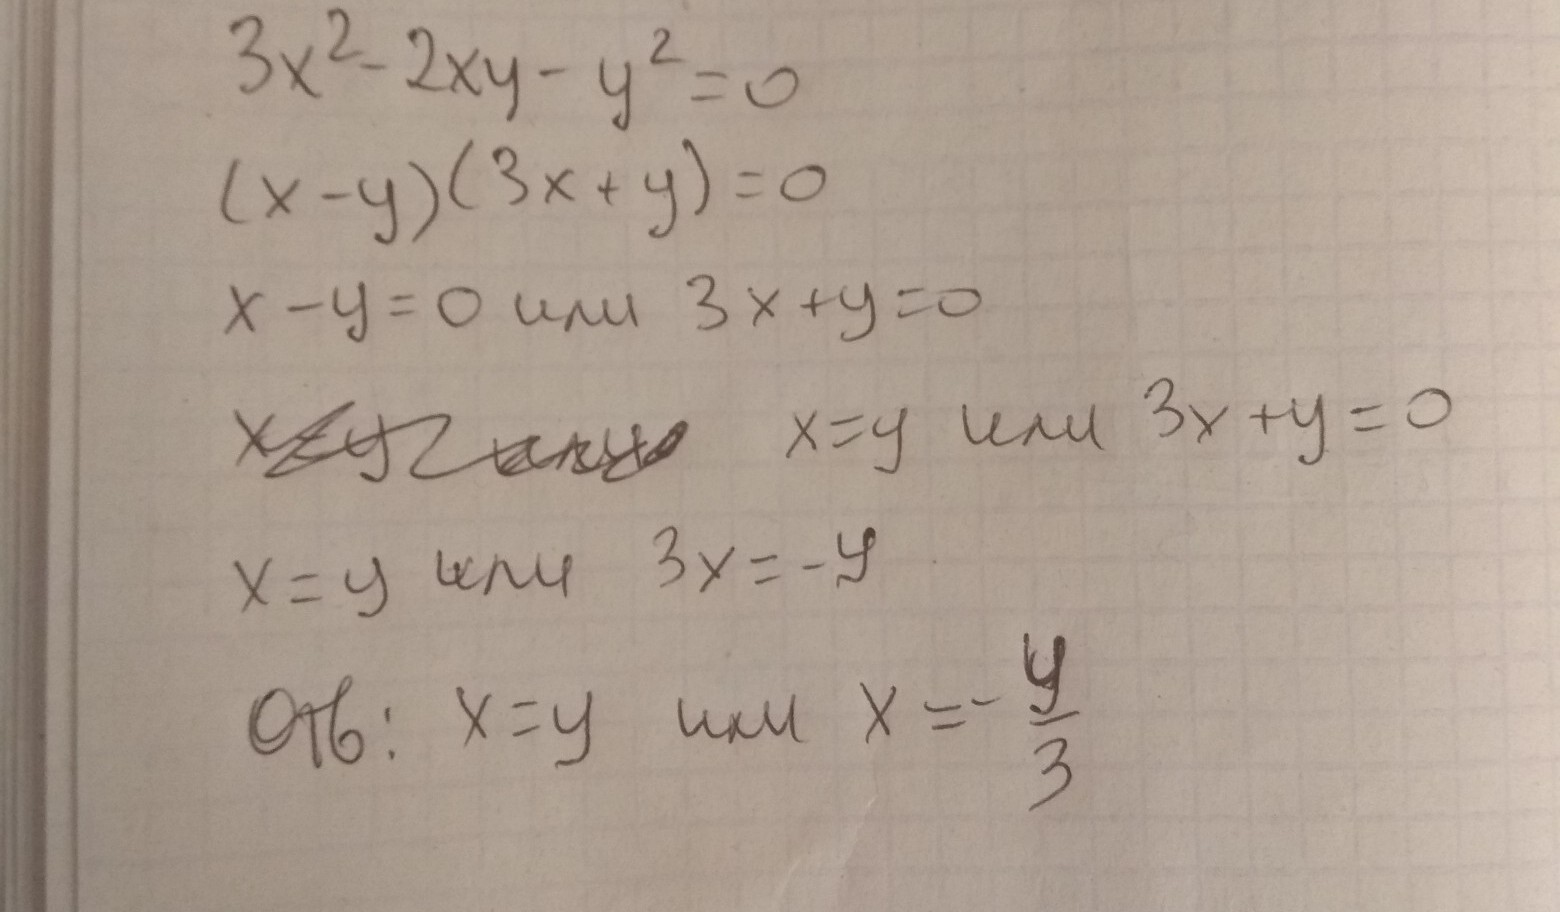 3x² - 2xy - y² = 0
(x - y)(3x + y) = 0
x - y = 0 или 3x + y = 0
x = y или 3x + y = 0
x = y или 3x = -y
Отв: x = y или x = - y/3